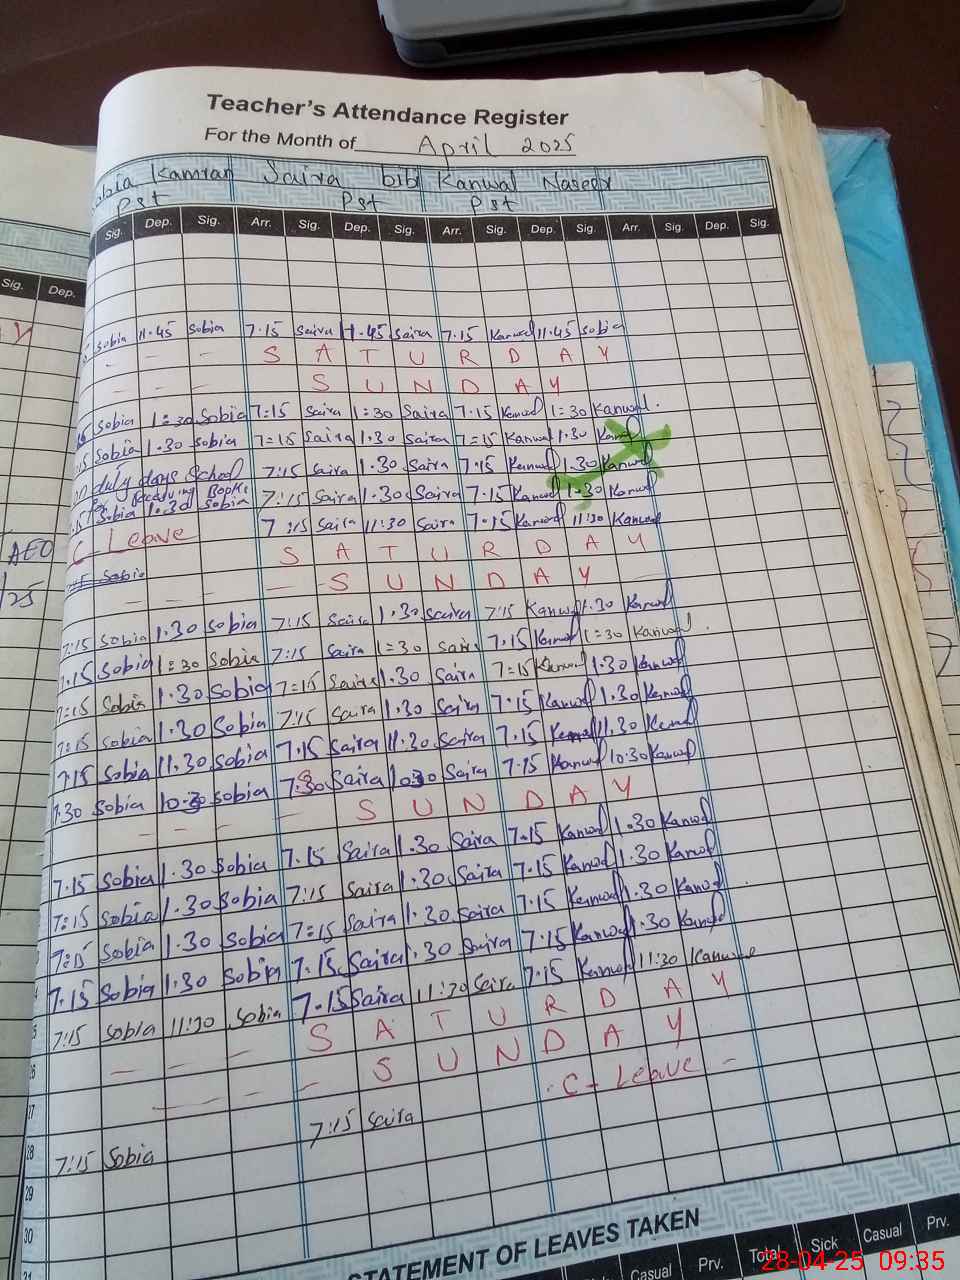 Teacher's Attendance Register
For the Month of April 2025
Sobia Kamran Saira bibi Kanwal Naseer
Pst Pst Pst
Sig. Dep. Sig. Dep. Sig. Arr. Sig. Dep. Sig. Arr. Sig. Dep. Sig. Arr. Sig. Dep. Sig.
Sobia 11.45 Sobia 7.15 Saira 11.45 Saira 7.15 Kanwal 11.45 Sobia
- - SATURDAY
- - SUNDAY
Sobia 1=30 Sobia 7=15 Saira 1=30 Saira 7.15 Kanwal 1=30 Kanwal.
Sobia 1.30 Sobia 7=15 Saira 1.30 Saira 7=15 Kanwal 1.30 Kanwal
On duty days School 7:15 Saira 1.30 Saira 7.15 Kanwal 1.30 Kanwal
for Receiving Books
Sobia 1.30 Sobia 7:15 Saira 1.30 Saira 7.15 Kanwal 1.30 Kanwal
C-Leave 7:15 Saira 11:30 Saira 7.15 Kanwal 11:30 Kanwal
SATURDAY
Sobia
- - - - SUNDAY
7:15 Sobia 1.30 Sobia 7:15 Saira 1.30 Saira 7:15 Kanwal 1.30 Kanwal
7.15 Sobia 1=30 Sobia 7:15 Saira 1=30 Saira 7.15 Kanwal 1=30 Kanwal.
7=15 Sobia 1.30 Sobia 7=15 Saira 1.30 Saira 7=15 Kanwal 1.30 Kanwal
7:15 Sobia 1.30 Sobia 7:15 Saira 1.30 Saira 7.15 Kanwal 1.30 Kanwal
7:15 Sobia 11.30 Sobia 7.15 Saira 11.30 Saira 7.15 Kanwal 11.30 Kanwal
7.30 Sobia 10.30 Sobia 7:30 Saira 10:30 Saira 7.15 Kanwal 10:30 Kanwal
- - - - SUNDAY
7.15 Sobia 1.30 Sobia 7.15 Saira 1.30 Saira 7.15 Kanwal 1.30 Kanwal
7:15 Sobia 1.30 Sobia 7:15 Saira 1.30 Saira 7.15 Kanwal 1.30 Kanwal
7=15 Sobia 1.30 Sobia 7=15 Saira 1.30 Saira 7.15 Kanwal 1.30 Kanwal
7.15 Sobia 1.30 Sobia 7.15 Saira 1.30 Saira 7.15 Kanwal 1.30 Kanwal
7:15 Sobia 11:30 Sobia 7.15 Saira 11:30 Saira 7.15 Kanwal 11:30 Kanwal
26 - - - SATURDAY
27 - - - SUNDAY
28 7:15 Sobia 7:15 Saira - C-Leave -
29
30
31
STATEMENT OF LEAVES TAKEN
Casual Prv. Total Sick Casual Prv.
AEO
28-04-25 09:35